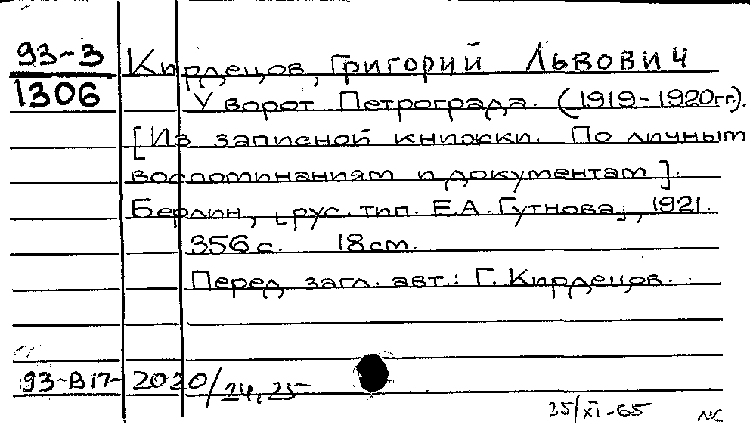 93-3 Кирдецов, Григорий Львович
1306 У ворот Петрограда. (1919-1920гг).
[Из записной книжки. По личным
воспоминаниям и документам].
Берлин, [рус. тип. Е.А. Гутнова], 1921.
356 с. 18 см.
Перед загл. авт.: Г. Кирдецов.
93-В17- 2020/24,25
25/XI-65